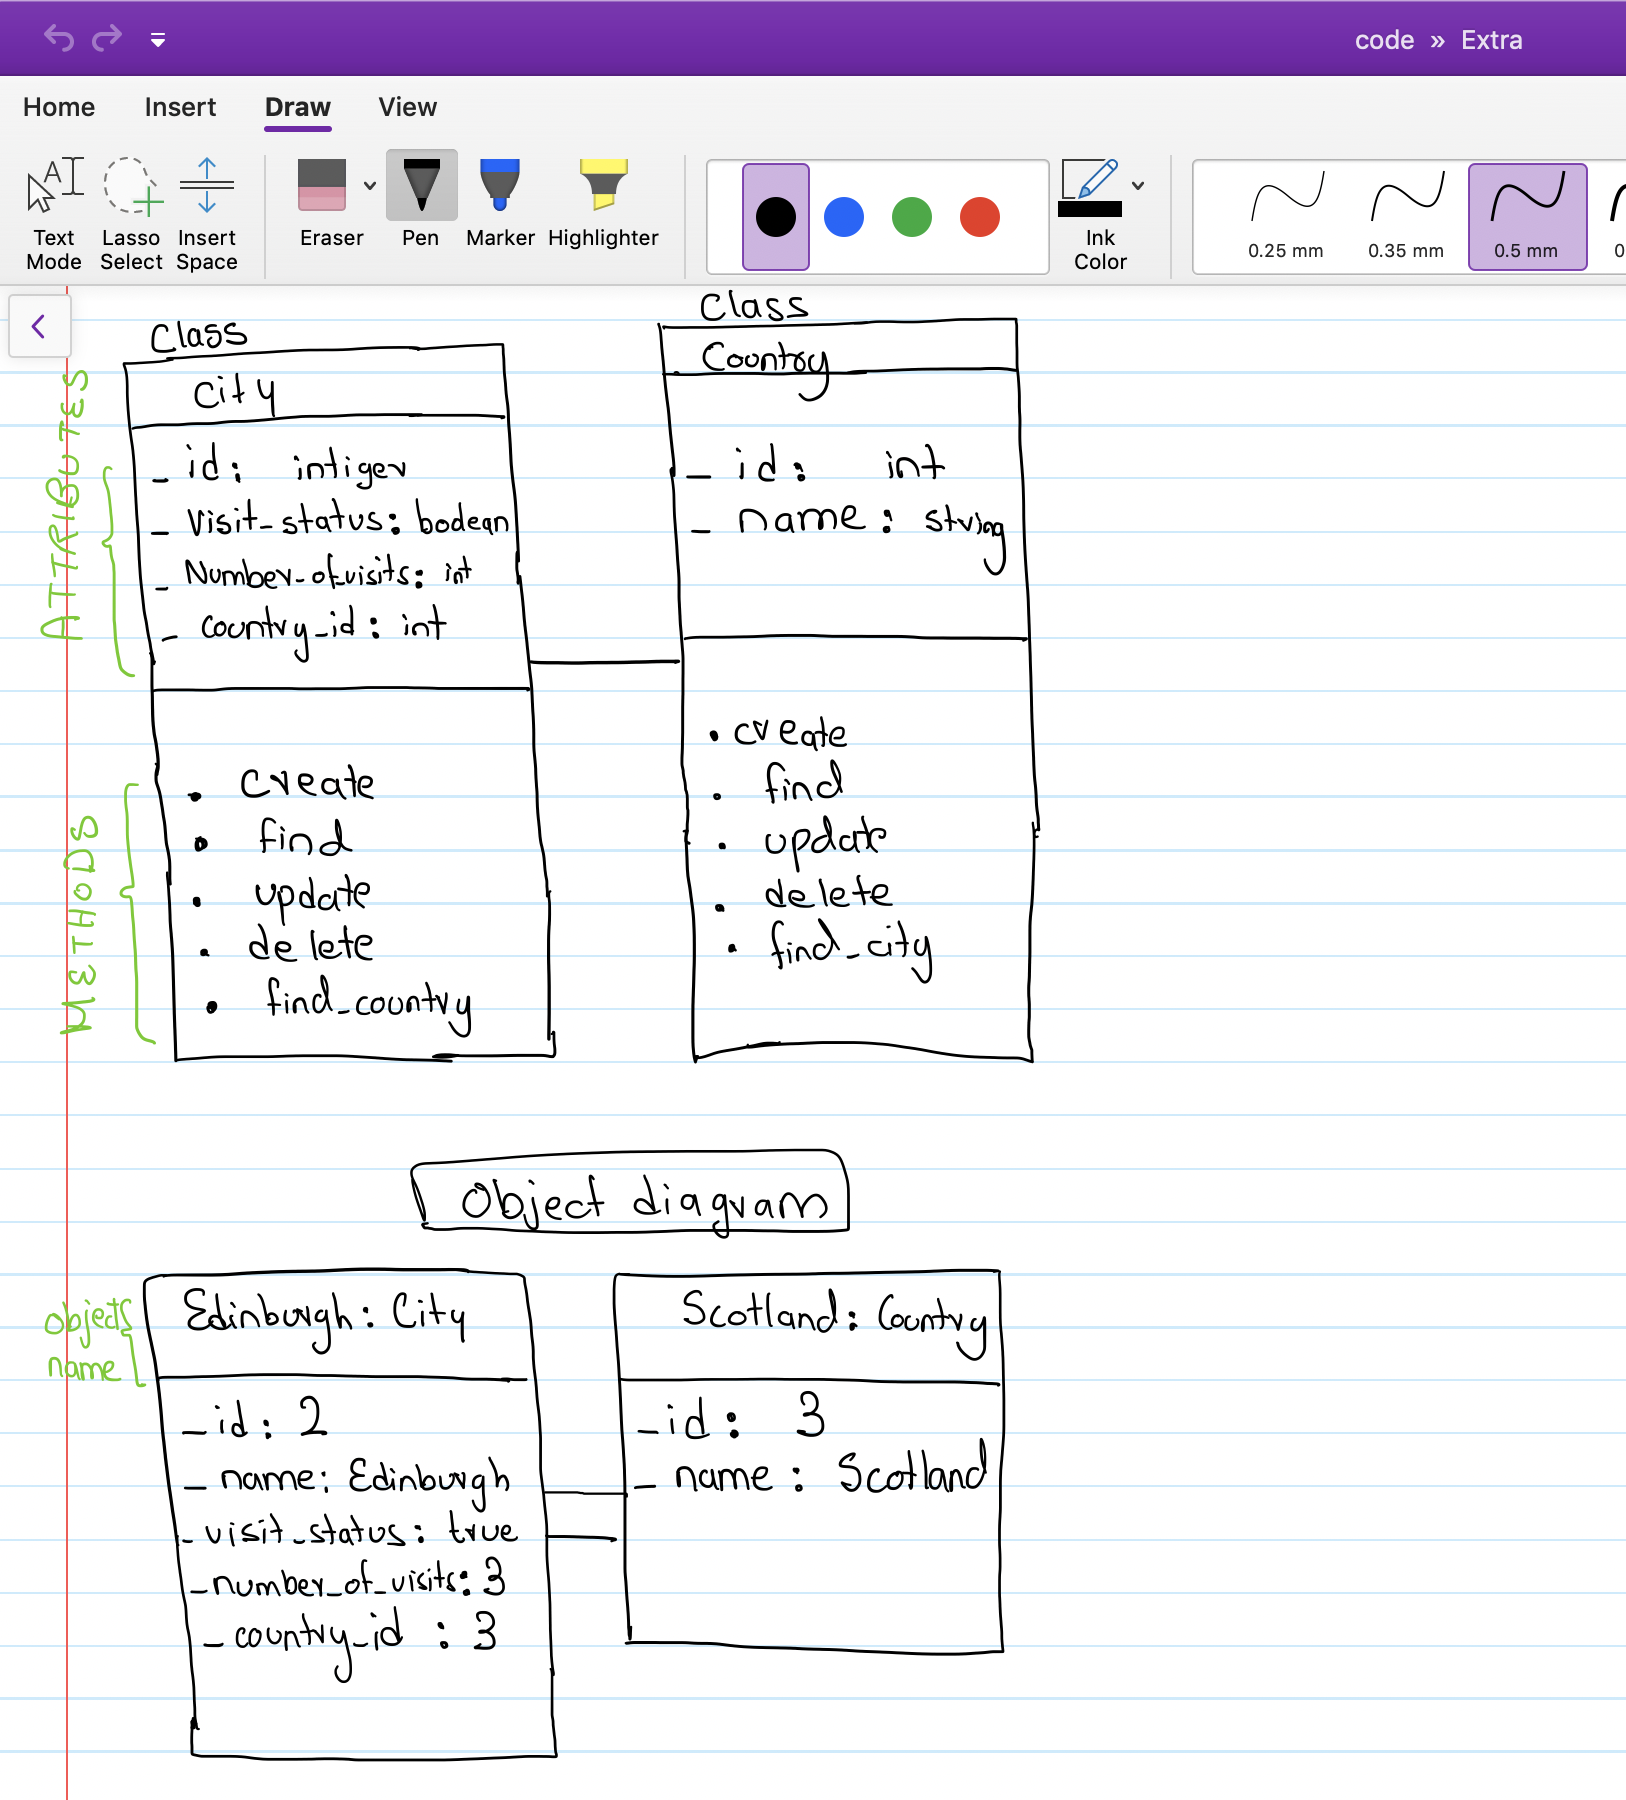 code » Extra
Home Insert Draw View
Text Mode
Lasso Select
Insert Space
Eraser
Pen
Marker
Highlighter
Ink Color
0.25 mm
0.35 mm
0.5 mm
0
Class
City
ATTRIBUTES
- id: intiger
- Visit_status: boolean
- Number_of_visits: int
- country_id: int
METHODS
• create
• find
• update
• delete
• find_country
Class
Country
- id: int
- name: string
• create
• find
• update
• delete
• find_city
Object diagram
objects name
Edinburgh: City
- id: 2
- name: Edinburgh
- visit_status: true
- number_of_visits: 3
- country_id: 3
Scotland: Country
- id: 3
- name: Scotland